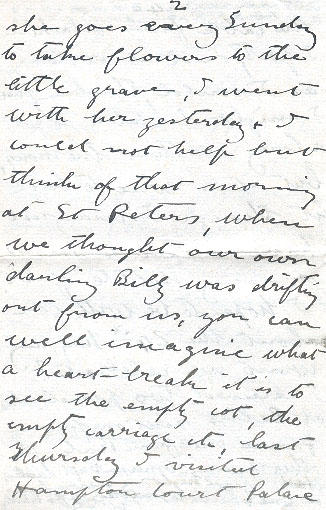 2
she goes every Sunday
to take flowers to the
little grave, I went
with her yesterday & I
could not help but
think of that morning
at St Peters, when
we thought our own
darling Billy was drifting
out from us, you can
well imagine what
a heart-break it is to
see the empty cot, the
empty carriage etc, last
Thursday I visited
Hampton Court Palace